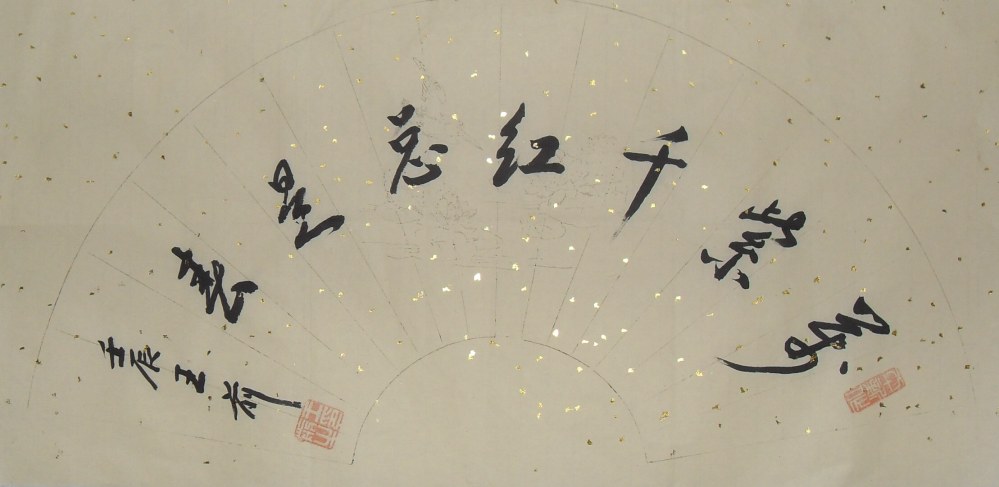 萬紫千红总是春
壬辰